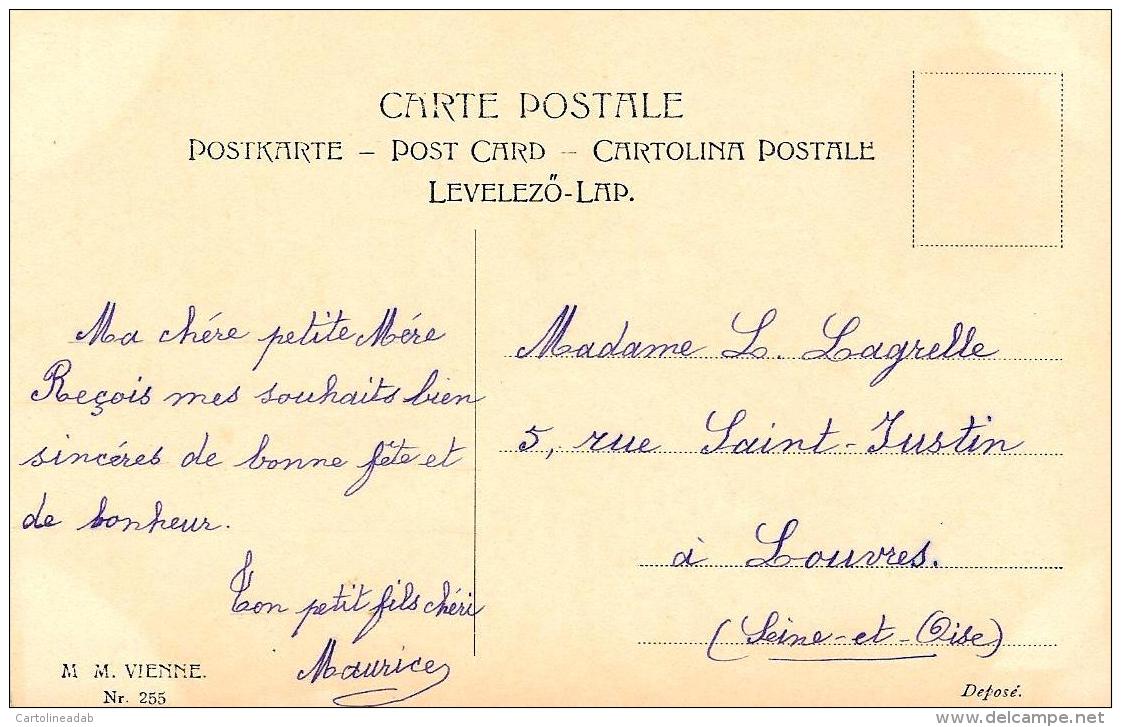 CARTE POSTALE
POSTKARTE – POST CARD – CARTOLINA POSTALE
LEVELEZŐ-LAP.
Ma chére petite Mére
Reçois mes souhaits bien
sincéres de bonne fête et
de bonheur.
Ton petit fils chéri
Maurice
Madame L. Lagrelle
5, rue Saint-Justin
à Louvres.
(Seine-et-Oise)
M. M. VIENNE.
Nr. 255
Deposé.
Cartolineadab
delcampe.net